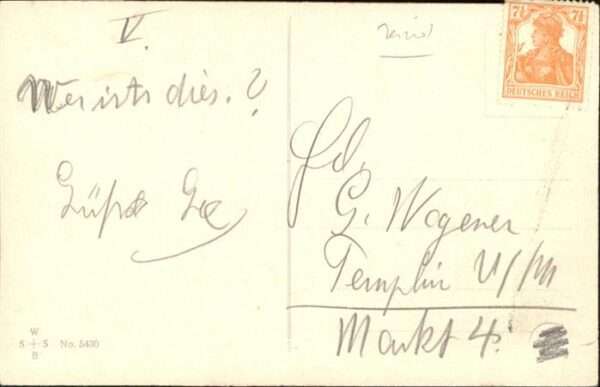 V.
Wer ists dies.?
7½ 7½
DEUTSCHES REICH
Fr.
G. Wegener
Templin U/M
Markt 4.
W
S + S No. 5430
B